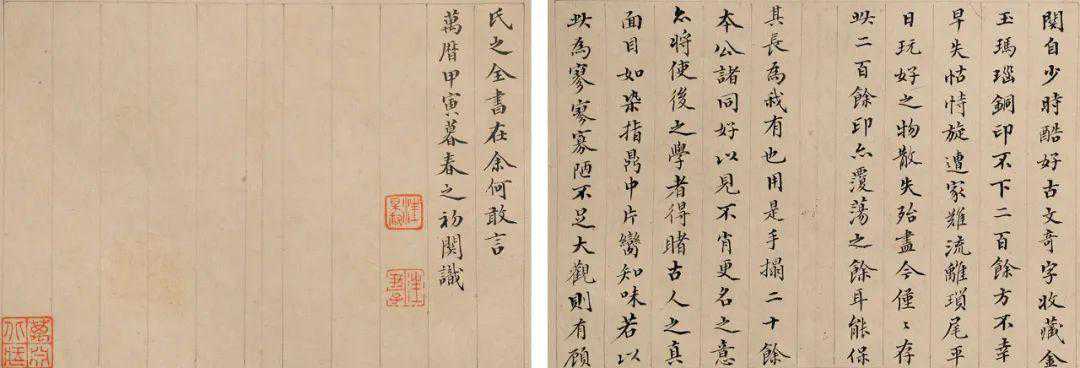 関自少時酷好古文奇字收藏金
玉瑪瑙銅印不下二百餘方不幸
早失怙恃旋遭家難流離瑣尾平
日玩好之物散失殆盡今僅〻存
此二百餘印亦覆蕩之餘耳能保
其長為我有也用是手搨二十餘
本公諸同好以見不肖更名之意
亦將使後之學者得睹古人之真
面目如染指鼎中片臠知味若以
此為寥寥寡陋不足大觀則有顧
氏之全書在余何敢言
萬曆甲寅暮春之初関識